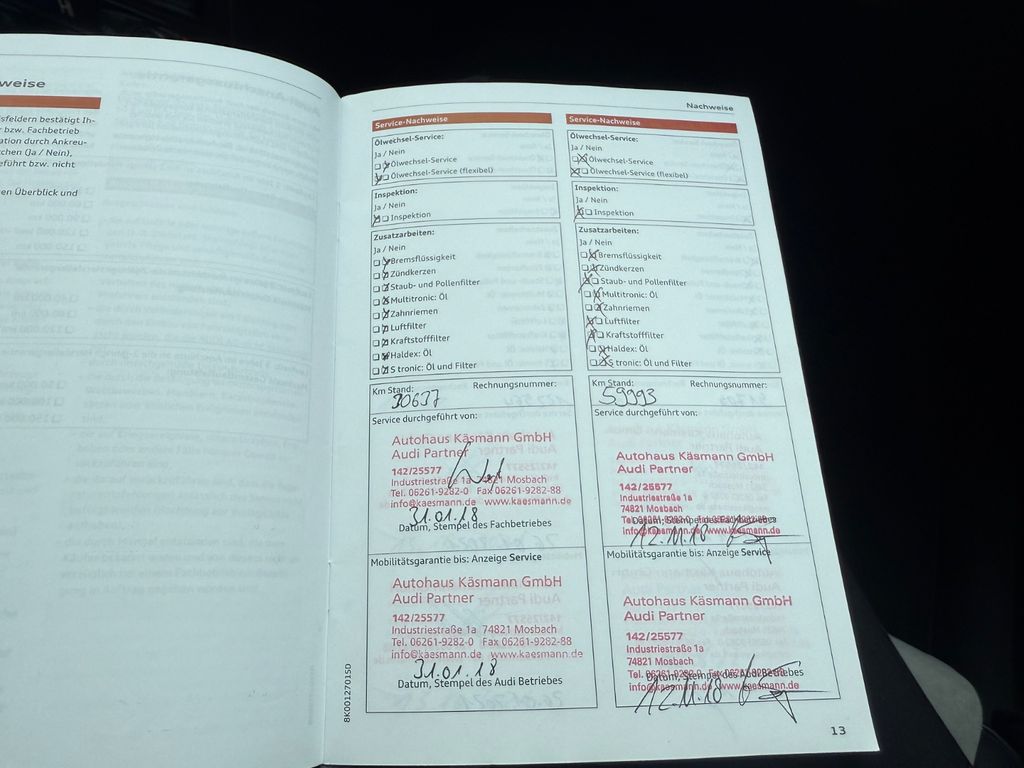 weise
sfeldern bestätigt Ih-
r bzw. Fachbetrieb
ation durch Ankreu-
chen (Ja / Nein),
eführt bzw. nicht
en Überblick und
Nachweise
Service-Nachweise
Ölwechsel-Service:
Ja / Nein
Ölwechsel-Service
Ölwechsel-Service (flexibel)
Inspektion:
Ja / Nein
Inspektion
Zusatzarbeiten:
Ja / Nein
Bremsflüssigkeit
Zündkerzen
Staub- und Pollenfilter
Multitronic: Öl
Zahnriemen
Luftfilter
Kraftstofffilter
Haldex: Öl
S tronic: Öl und Filter
Km Stand: Rechnungsnummer:
30637
Service durchgeführt von:
Autohaus Käsmann GmbH
Audi Partner
142/25577
Industriestraße 1a 74821 Mosbach
Tel. 06261-9282-0 Fax 06261-9282-88
info@kaesmann.de www.kaesmann.de
31.01.18
Datum, Stempel des Fachbetriebes
Mobilitätsgarantie bis: Anzeige Service
Autohaus Käsmann GmbH
Audi Partner
142/25577
Industriestraße 1a 74821 Mosbach
Tel. 06261-9282-0 Fax 06261-9282-88
info@kaesmann.de www.kaesmann.de
31.01.18
Datum, Stempel des Audi Betriebes
Service-Nachweise
Ölwechsel-Service:
Ja / Nein
Ölwechsel-Service
Ölwechsel-Service (flexibel)
Inspektion:
Ja / Nein
Inspektion
Zusatzarbeiten:
Ja / Nein
Bremsflüssigkeit
Zündkerzen
Staub- und Pollenfilter
Multitronic: Öl
Zahnriemen
Luftfilter
Kraftstofffilter
Haldex: Öl
S tronic: Öl und Filter
Km Stand: Rechnungsnummer:
59993
Service durchgeführt von:
Autohaus Käsmann GmbH
Audi Partner
142/25577
Industriestraße 1a
74821 Mosbach
Tel. 06261-9282-0 Fax 06261-9282-88
Datum, Stempel des Fachbetriebes
info@kaesmann.de www.kaesmann.de
12.11.18
Mobilitätsgarantie bis: Anzeige Service
Autohaus Käsmann GmbH
Audi Partner
142/25577
Industriestraße 1a
74821 Mosbach
Tel. 06261-9282-0 Fax 06261-9282-88
Datum, Stempel des Audi Betriebes
info@kaesmann.de www.kaesmann.de
12.11.18
8K0012701SD
13